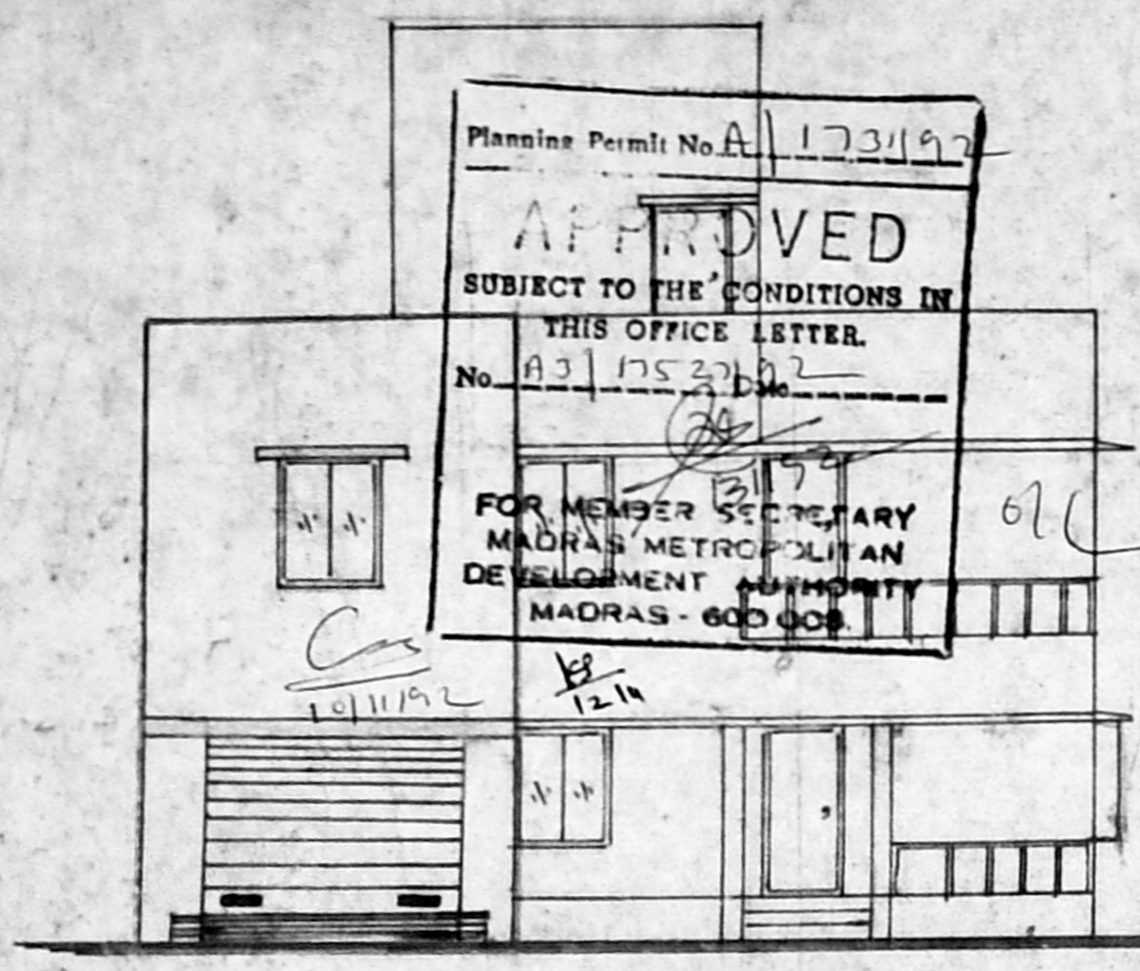 Planning Permit No. A/173/92
APPROVED
SUBJECT TO THE CONDITIONS IN
THIS OFFICE LETTER.
No. A3/17527/92 Date
FOR MEMBER SECRETARY
MADRAS METROPOLITAN
DEVELOPMENT AUTHORITY
MADRAS - 600 008.
10/11/92
12/11